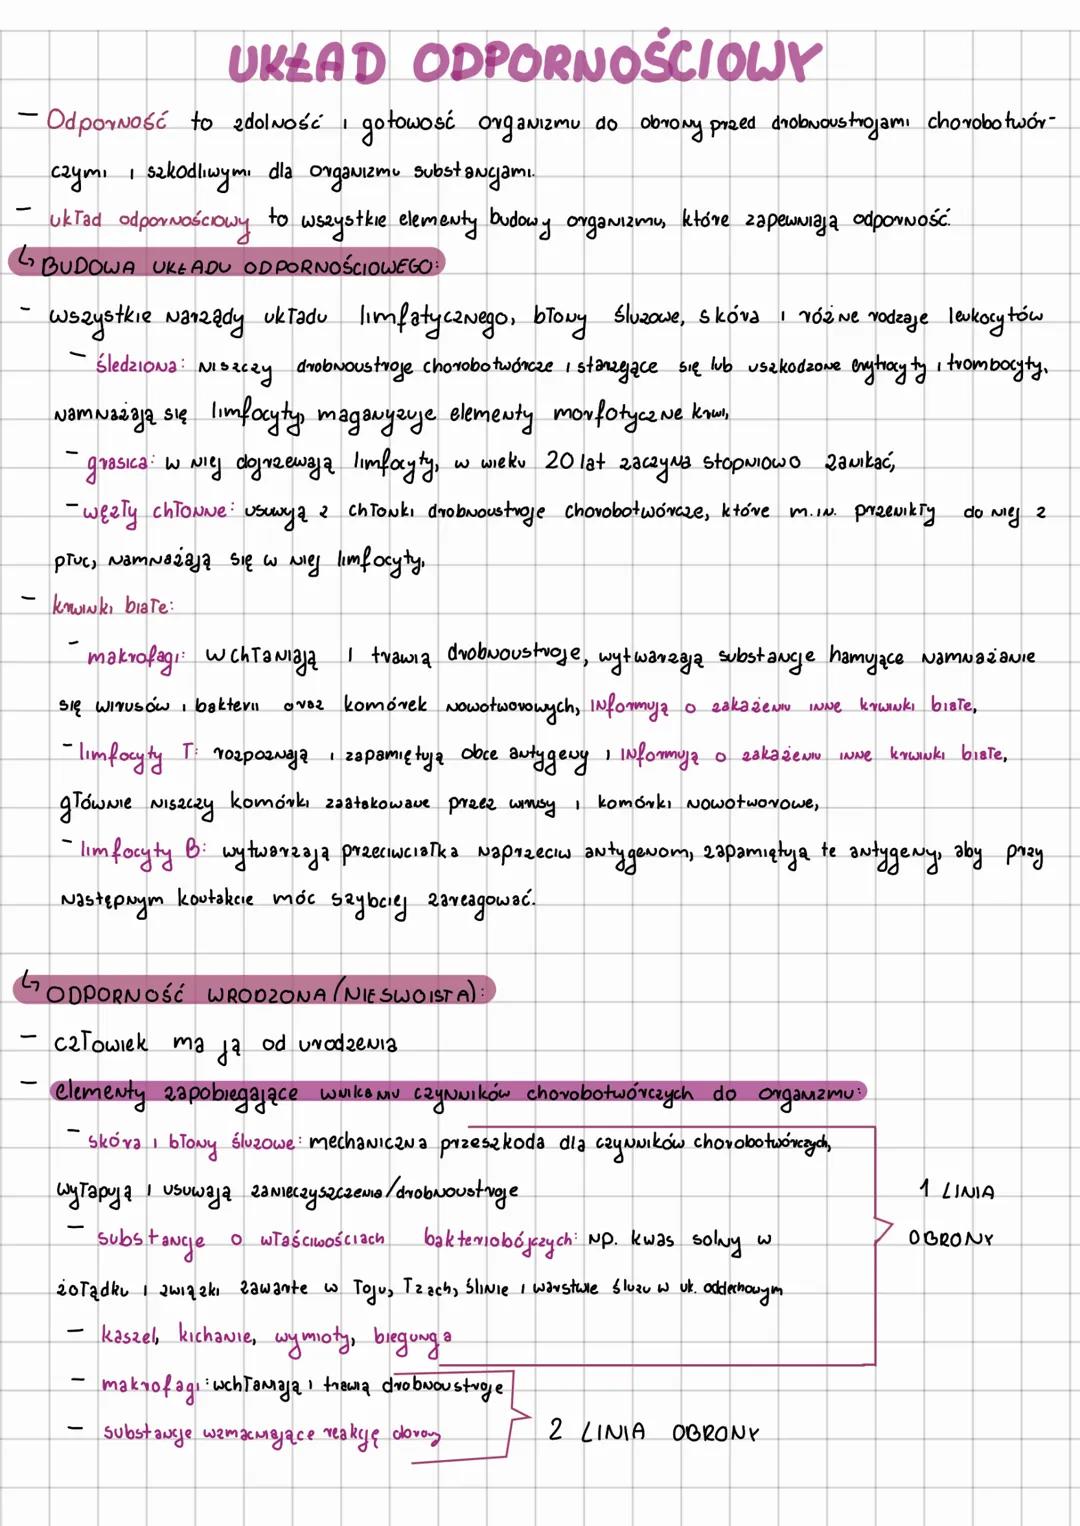 UKŁAD ODPORNOŚCIOWY
- Odporność to zdolność i gotowość organizmu do obrony przed drobnoustrojami chorobotwór-
czymi i szkodliwymi dla organizmu substancjami.
- układ odpornościowy to wszystkie elementy budowy organizmu, które zapewniają odporność.
↳ BUDOWA UKŁADU ODPORNOŚCIOWEGO:
- wszystkie narządy układu limfatycznego, błony śluzowe, skóra i różne rodzaje leukocytów
- śledziona: niszczy drobnoustroje chorobotwórcze i starzejące się lub uszkodzone erytrocyty i trombocyty,
namnażają się limfocyty, maganyzuje elementy morfotyczne krwi,
- grasica: w niej dojrzewają limfocyty, w wieku 20 lat zaczyna stopniowo zanikać,
- węzły chłonne: usuwją z chłonki drobnoustroje chorobotwórcze, które m.in. przenikły do niej z
płuc, namnażają się w niej limfocyty,
- krwinki białe:
- makrofagi: wchłaniają i trawią drobnoustroje, wytwarzają substancje hamujące namnażanie
się wirusów i bakterii oraz komórek nowotworowych, informują o zakażeniu inne krwinki białe,
- limfocyty T: rozpoznają i zapamiętują obce antygeny i informują o zakażeniu inne krwinki białe,
głównie niszczy komórki zaatakowane przez wirusy i komórki nowotworowe,
- limfocyty B: wytwarzają przeciwciałka naprzeciw antygenom, zapamiętują te antygeny, aby przy
następnym kontakcie móc szybciej zareagować.
↳ ODPORNOŚĆ WRODZONA (NIESWOISTA):
- człowiek ma ją od urodzenia
- elementy zapobiegające wnikaniu czynników chorobotwórczych do organizmu:
- skóra i błony śluzowe: mechaniczna przeszkoda dla czynników chorobotwórczych,
wyłapują i usuwają zanieczyszczenia/drobnoustroje
1 LINIA
- substancje o właściwościach bakteriobójczych: np. kwas solny w
OBRONY
żołądku i związki zawarte w łoju, łzach, ślinie i warstwie śluzu w uk. oddechowym
- kaszel, kichanie, wymioty, biegunga
- makrofagi: wchłaniają i trawią drobnoustroje
- substancje wzmacniające reakcję obrony
2 LINIA OBRONY